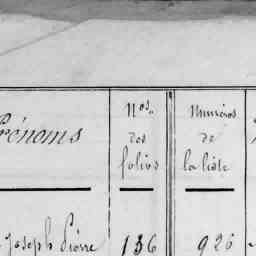 Prénoms
Nos.
des
folios
Numéros
de
la liste
Joseph Pierre 136 926